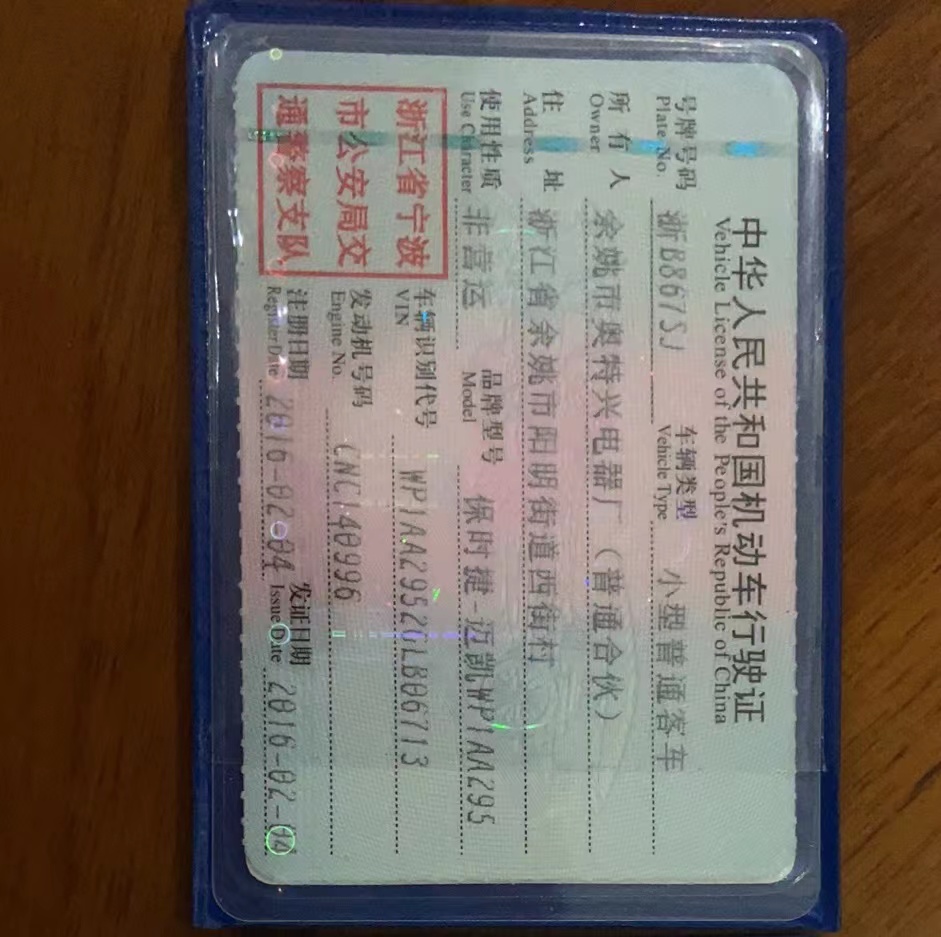 中华人民共和国机动车行驶证
Vehicle License of the People's Republic of China
号牌号码 浙B867SJ 车辆类型 小型普通客车
Plate No. Vehicle Type
所有人 余姚市奥特兴电器厂(普通合伙)
Owner
住址 浙江省余姚市阳明街道西街村
Address
使用性质 非营运 品牌型号 保时捷-迈凯WP1AA295
Use Character Model
浙江省宁波
市公安局交
通警察支队
车辆识别代号 WP1AA2952GLB06713
VIN
发动机号码 CNC140996
Engine No.
注册日期 2016-02-04 发证日期 2016-02-04
Register Date Issue Date